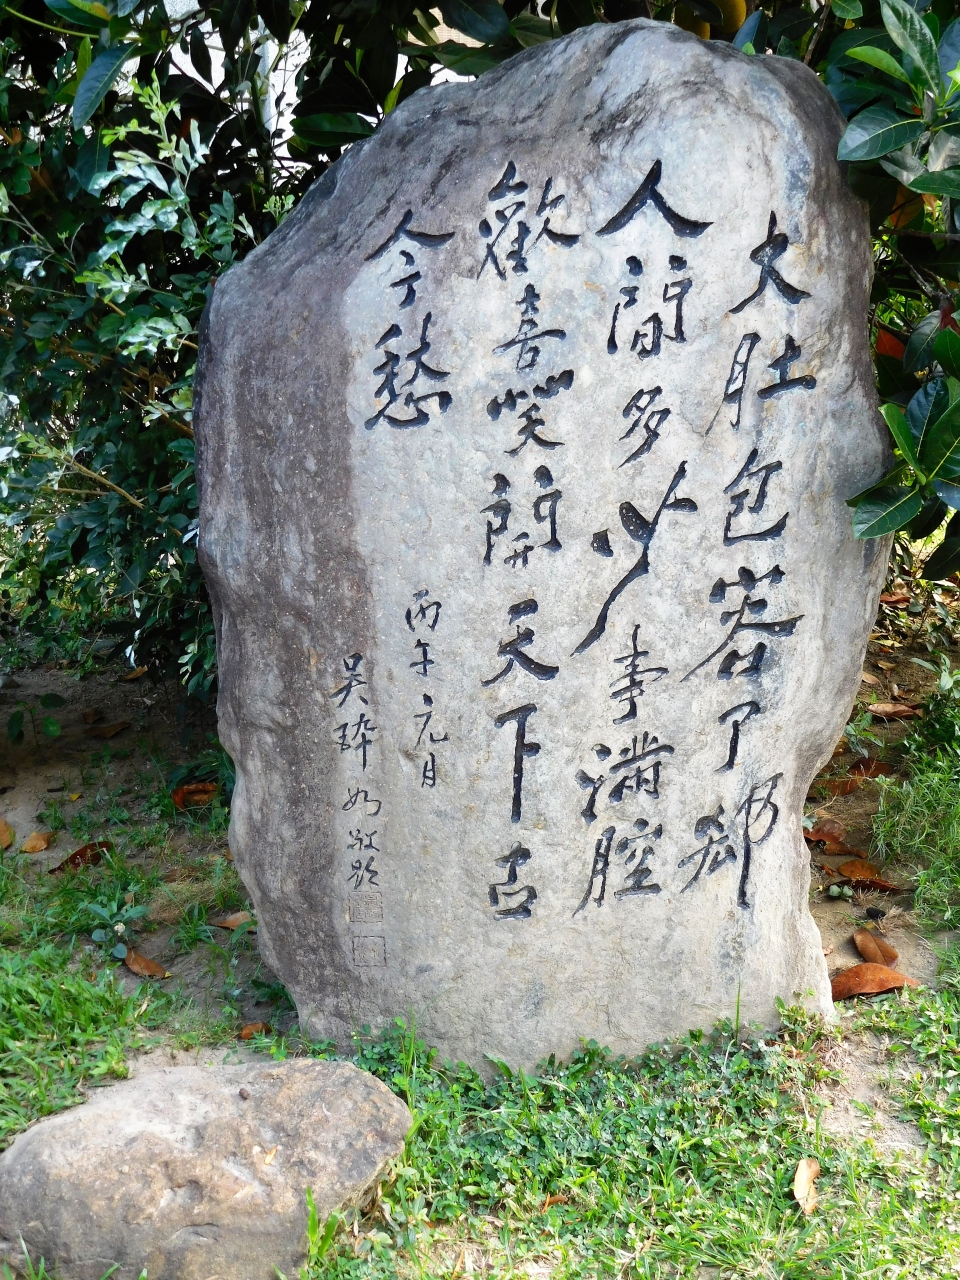 大肚包容了卻
人間多少事滿腔
歡喜笑開天下古
今愁
丙午元月
吳
敬題